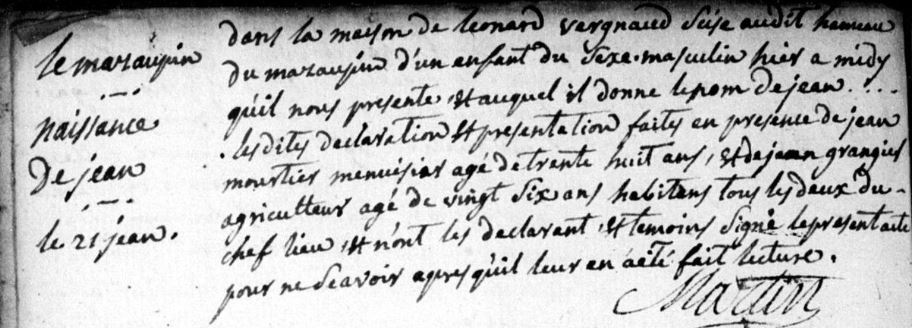 le mazaupin
naissance
De jean
le 21 jean.
dans la maison de leonard vergnaud scise audit hameau
du mazaupin d'un enfant du sexe masculin hier a midy
qu'il nous presente, et auquel il donne le nom de jean. ...
. les dites declaration et presentation faites en presence de jean
moustier menuisier agé de trente huit ans, et de jean grangier
agriculteur agé de vingt six ans habitens tous les deux du-
chef lieu, et n'ont les declarant, et temoins signé le present acte
pour ne scavoir apres qu'il leur en a eté fait lecture.
Martin